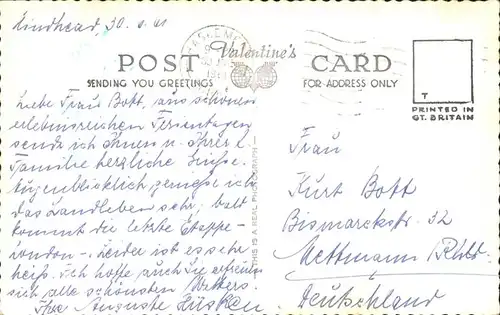 Hindhead 30.6.61
POST Valentine's CARD
SENDING YOU GREETINGS
FOR ADDRESS ONLY
T
PRINTED IN
GT. BRITAIN
THIS IS A REAL PHOTOGRAPH
Liebe Frau Bott, aus schönen
erlebnisreichen Ferientagen
sende ich Ihnen u. Ihrer l.
Familie herzliche Grüße.
Augenblicklich genieße ich
das Landleben sehr, bald
kommt die letzte Etappe -
London -. Leider ist es sehr
heiß. Ich hoffe, auch Sie erfreuen
sich alle schönsten Wetters.
Ihre Auguste Hüsken
Frau
Kurt Bott
Bismarckstr. 32
Mettmann Rhld.
Deutschland